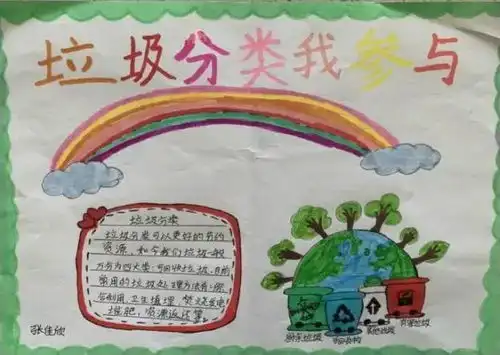 垃圾分类我参与
垃圾分类
垃圾分类可以更好的有约
资源,如今我们垃圾一般
万分为四大类:可回收垃圾,目前
常用的垃圾处理方法有:综
合利用、卫生填埋、焚烧发电
堆肥,资源返还等。
张佳欣
厨余垃圾
可回收物
其他垃圾
有害垃圾